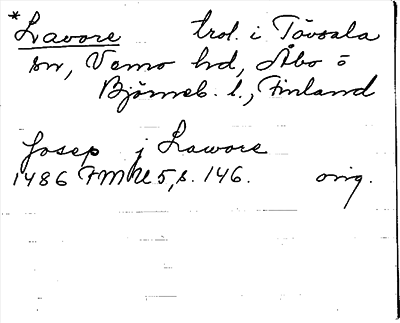 *Lavore trol. i Tövsala
sn, Vemo hd, Åbo o
Björneb. l., Finland
Josep j Lawore
1486 FMU 5, s. 146. orig.